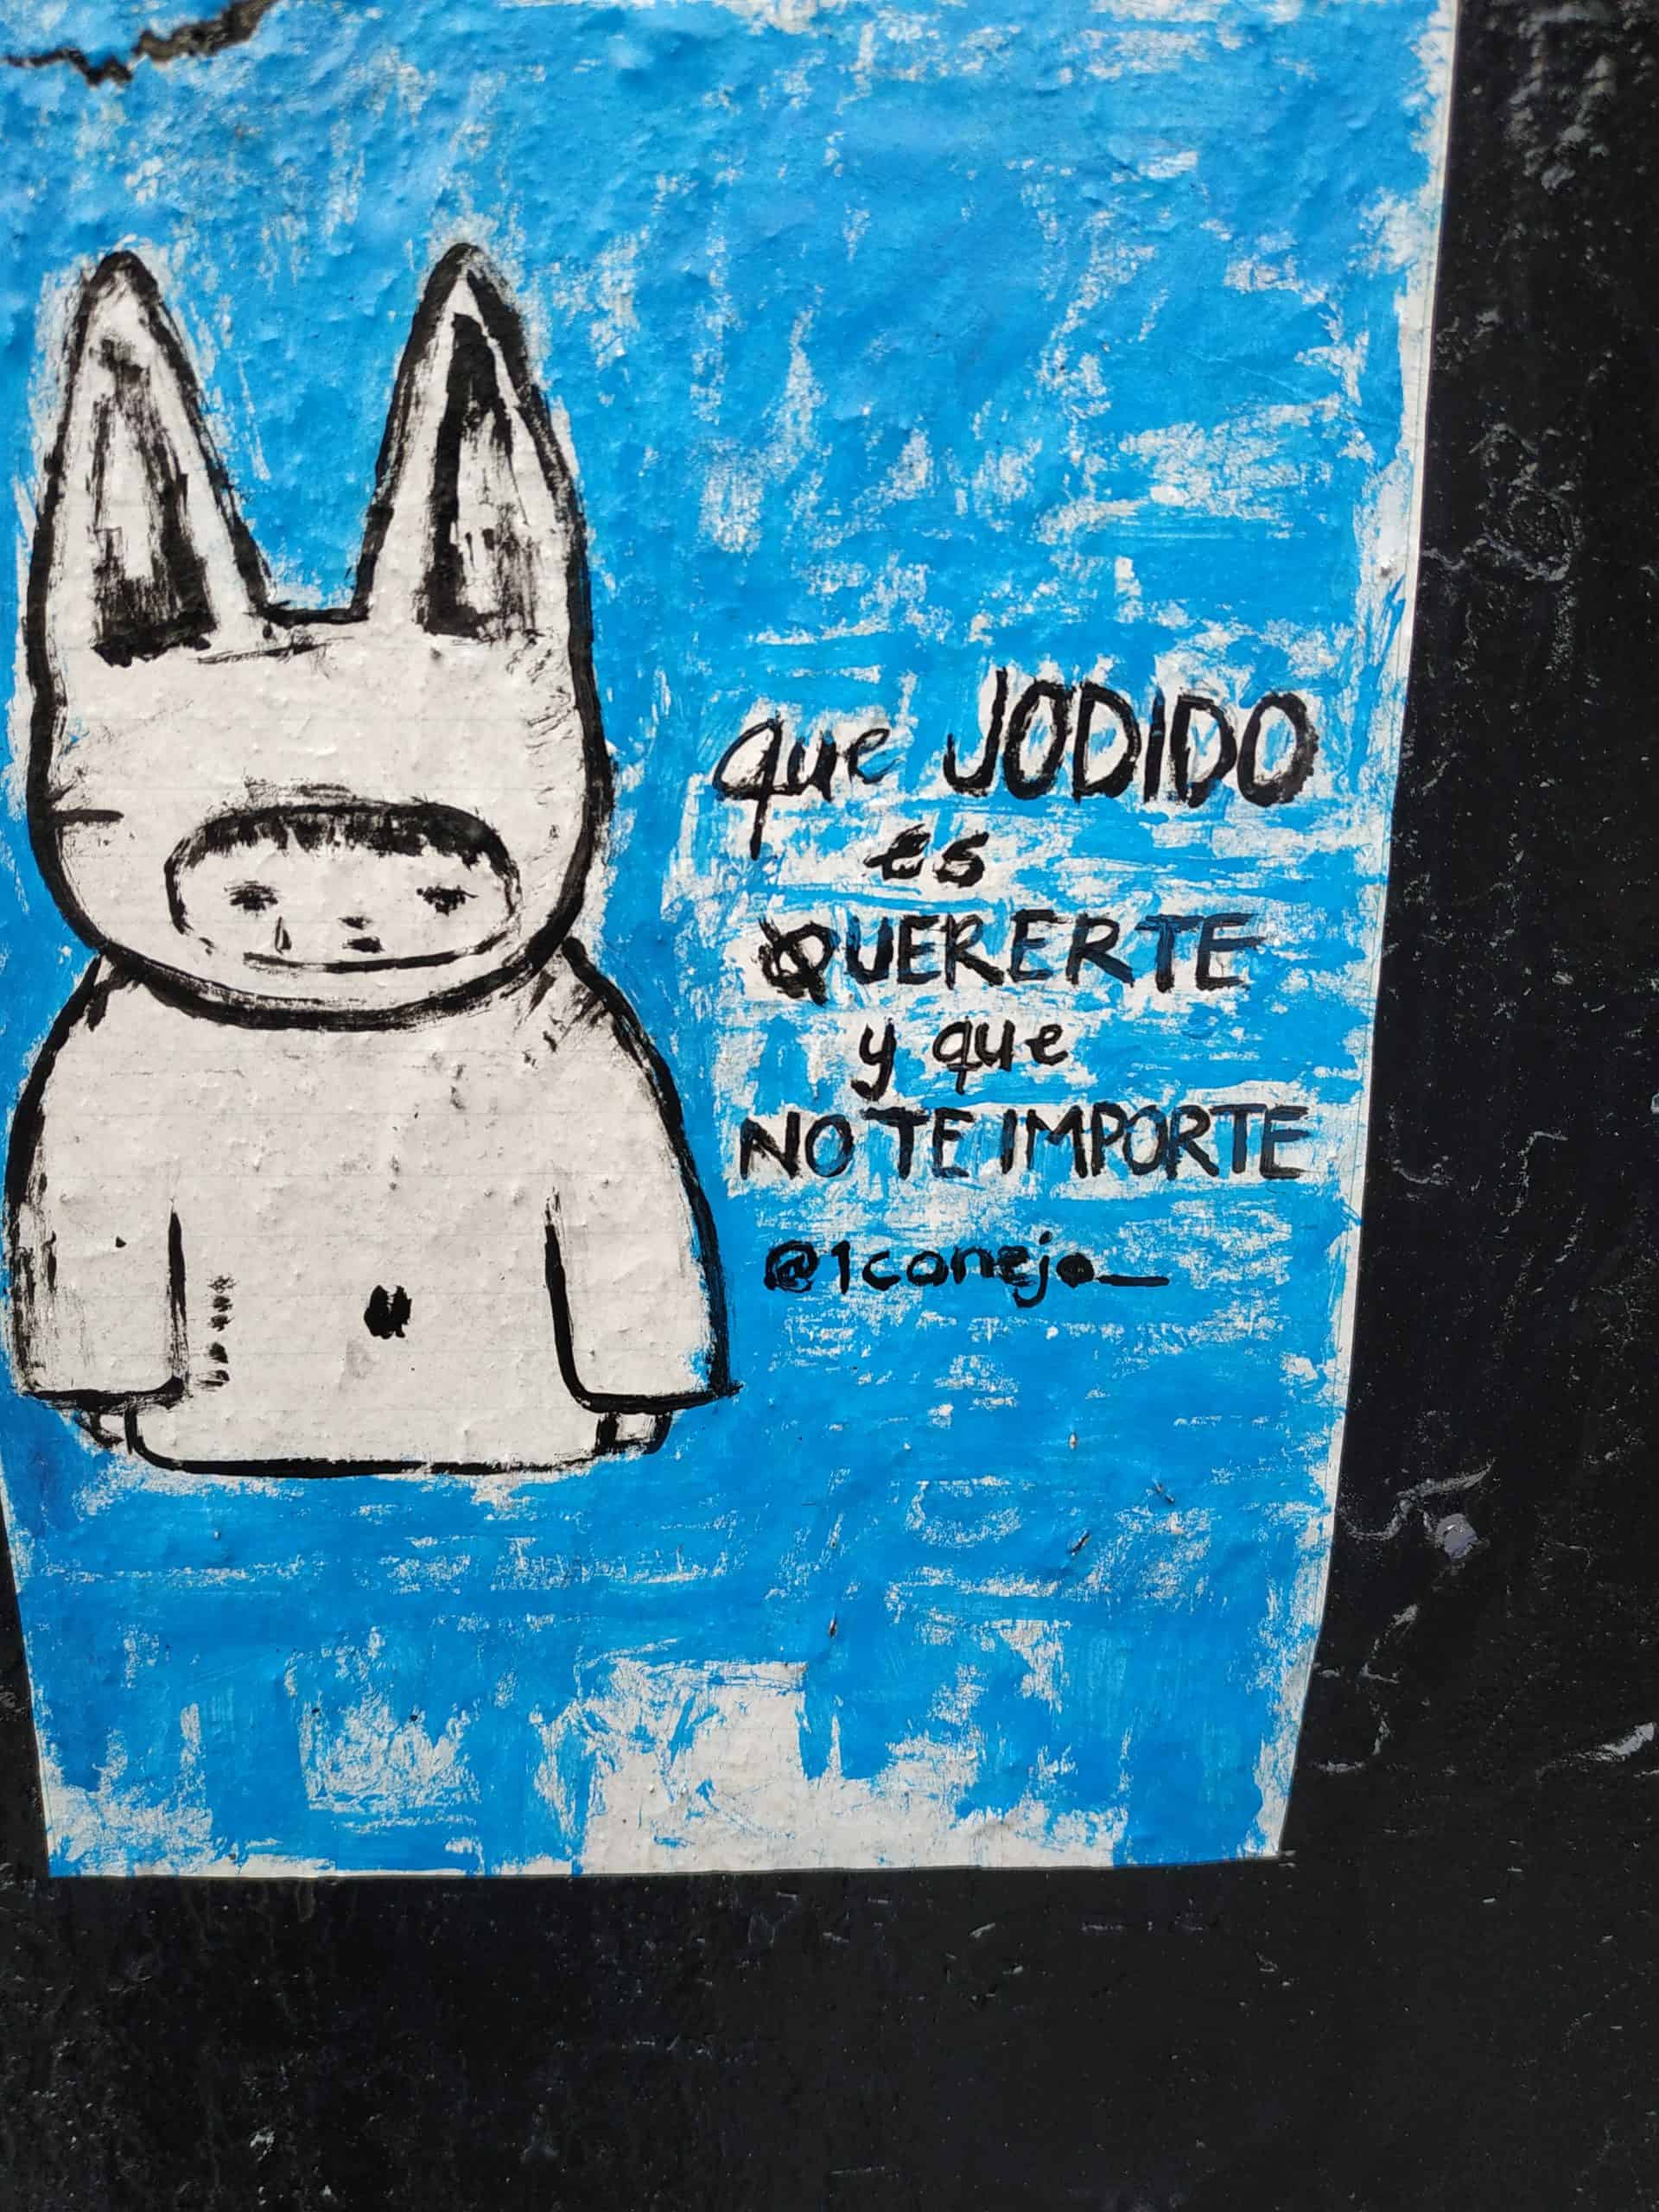 que JODIDO
es
QUERERTE
y que
NO TE IMPORTE
@1conejo_